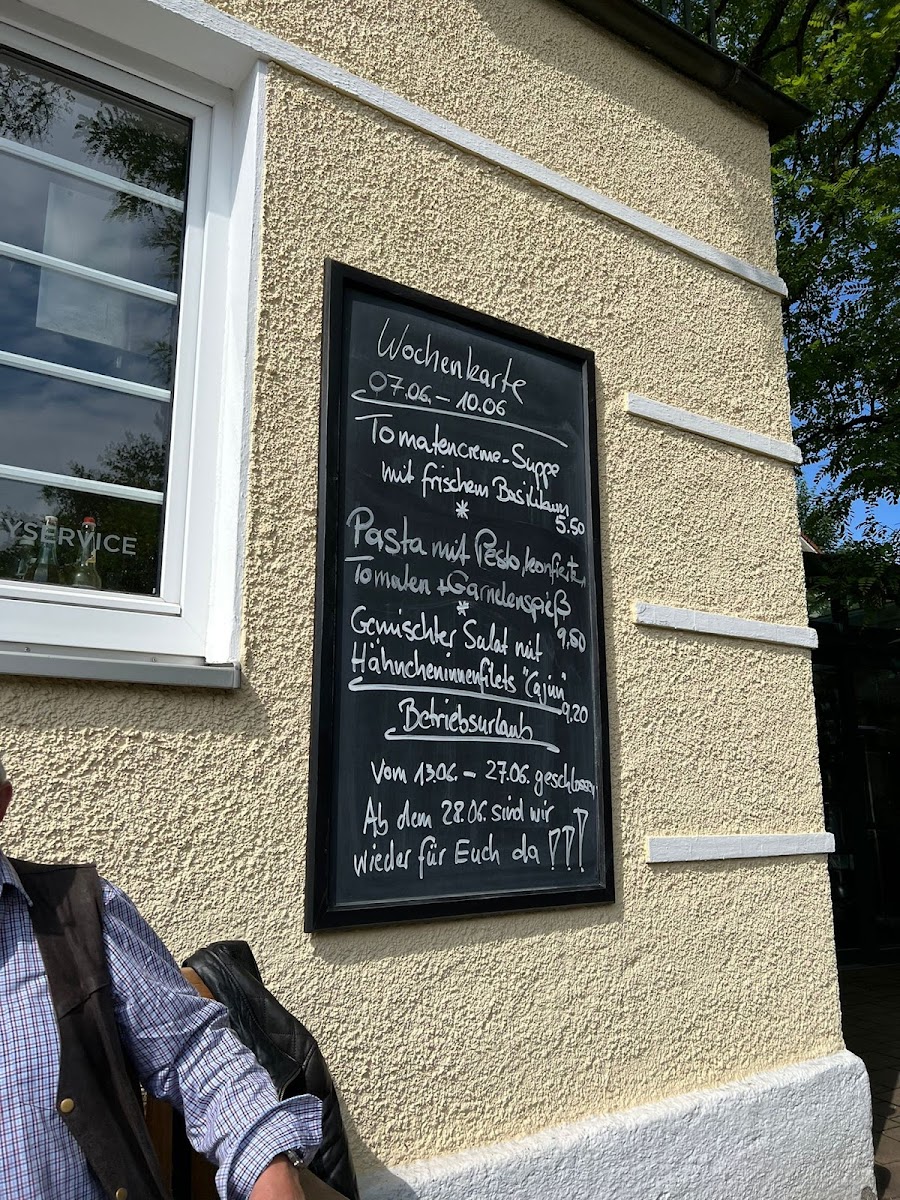 Wochenkarte
07.06. – 10.06
Tomatencreme-Suppe
mit frischem Basilikum
*
5.50
Pasta mit Pesto, konfierten
Tomaten + Garnelenspieß
*
9,80
Gemischter Salat mit
Hähncheninnenfilets "Cajun"
9.20
Betriebsurlaub
Vom 13.06. – 27.06. geschlossen
Ab dem 28.06. sind wir
wieder für Euch da !!!
YSERVICE